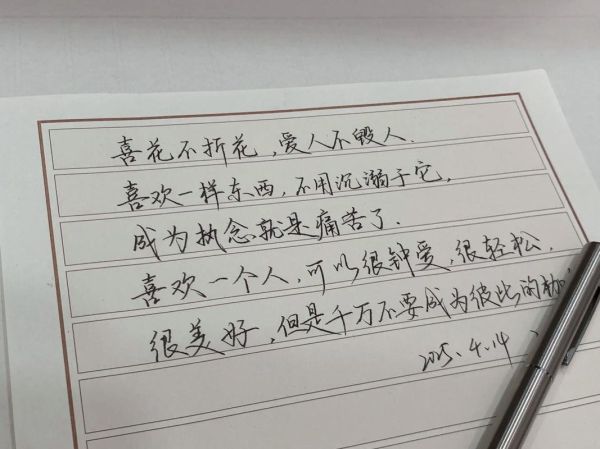 喜花不折花，爱人不毁人.
喜欢一样东西，不用沉溺于它，
成为执念就是痛苦了.
喜欢一个人，可以很钟爱，很轻松，
很美好，但是千万不要成为彼此的枷
2025.4.14